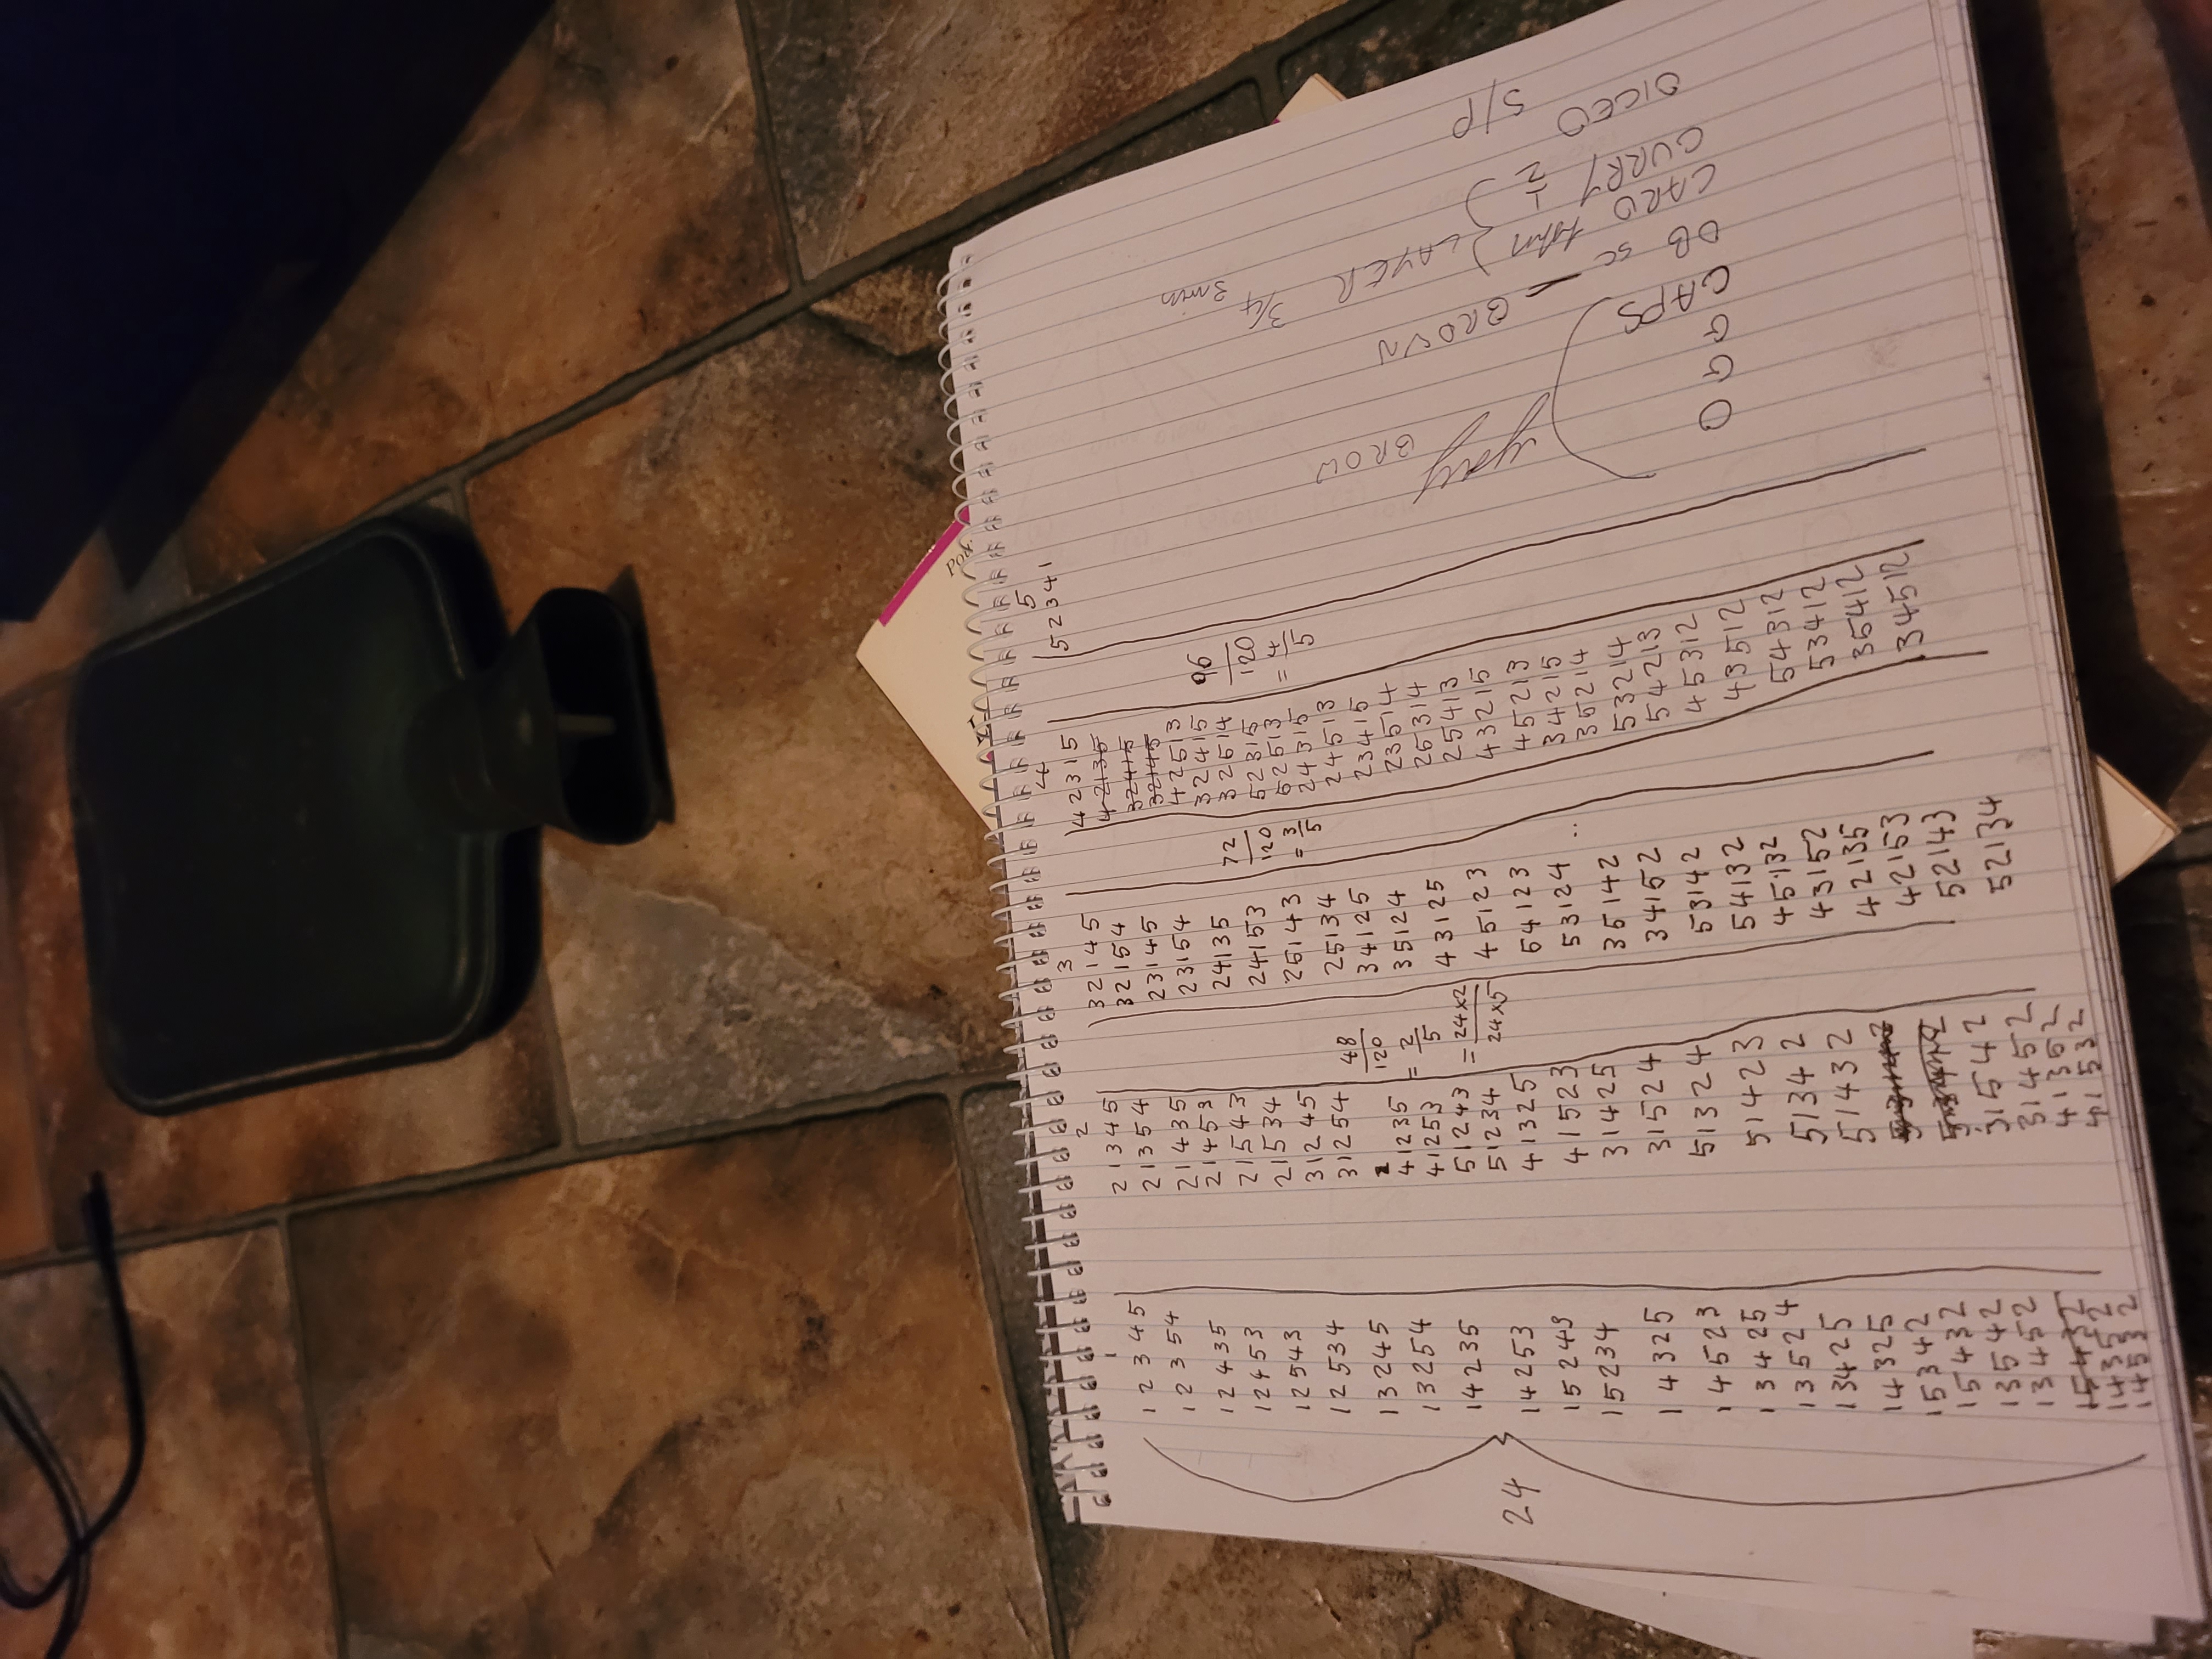 1
1 2 3 4 5
1 2 3 5 4
1 2 4 3 5
1 2 4 5 3
1 2 5 4 3
1 2 5 3 4
1 3 2 4 5
1 3 2 5 4
1 4 2 3 5
1 4 2 5 3
1 5 2 4 3
1 5 2 3 4
1 4 3 2 5
1 4 5 2 3
1 3 4 2 5
1 3 5 2 4
1 3 4 2 5
1 4 3 2 5
1 5 3 4 2
1 5 4 3 2
1 3 5 4 2
1 3 4 5 2
1 4 3 5 2
1 4 5 3 2
24
2
2 1 3 4 5
2 1 3 5 4
2 1 4 3 5
2 1 4 5 3
2 1 5 4 3
2 1 5 3 4
3 1 2 4 5
3 1 2 5 4
4 1 2 3 5
4 1 2 5 3
5 1 2 4 3
5 1 2 3 4
4 1 3 2 5
4 1 5 2 3
3 1 4 2 5
3 1 5 2 4
5 1 3 2 4
5 1 4 2 3
5 1 3 4 2
5 1 4 3 2
3 1 5 4 2
3 1 4 5 2
4 1 3 5 2
4 1 5 3 2
48
120
= 2
5
= 24 x 2
24 x 5
3
3 2 1 4 5
3 2 1 5 4
2 3 1 4 5
2 3 1 5 4
2 4 1 3 5
2 4 1 5 3
2 5 1 4 3
2 5 1 3 4
3 4 1 2 5
3 5 1 2 4
4 3 1 2 5
4 5 1 2 3
5 4 1 2 3
5 3 1 2 4
3 5 1 4 2
3 4 1 5 2
5 3 1 4 2
5 4 1 3 2
4 5 1 3 2
4 3 1 5 2
4 2 1 3 5
4 2 1 5 3
5 2 1 4 3
5 2 1 3 4
72
120
= 3
5
4
4 2 3 1 5
4 2 1 3 5
3 2 4 1 5
4 2 5 1 3
3 2 4 1 5
3 2 5 1 4
5 2 3 1 5
5 2 5 1 3
2 4 3 1 5
2 4 5 1 3
2 3 4 1 5
2 3 5 1 4
2 5 3 1 4
2 5 4 1 3
4 3 2 1 5
4 5 2 1 3
3 4 2 1 5
3 5 2 1 4
5 3 2 1 4
5 4 2 1 3
4 5 3 1 2
4 3 5 1 2
5 4 3 1 2
5 3 4 1 2
3 5 4 1 2
3 4 5 1 2
96
120
= 4
5
5
5 2 3 4 1
BROW
O
G
G
CAPS
OB SC — BROWN
CARO
CURRY 1/2
LAYER 3/4
3 min
DICED
S/P